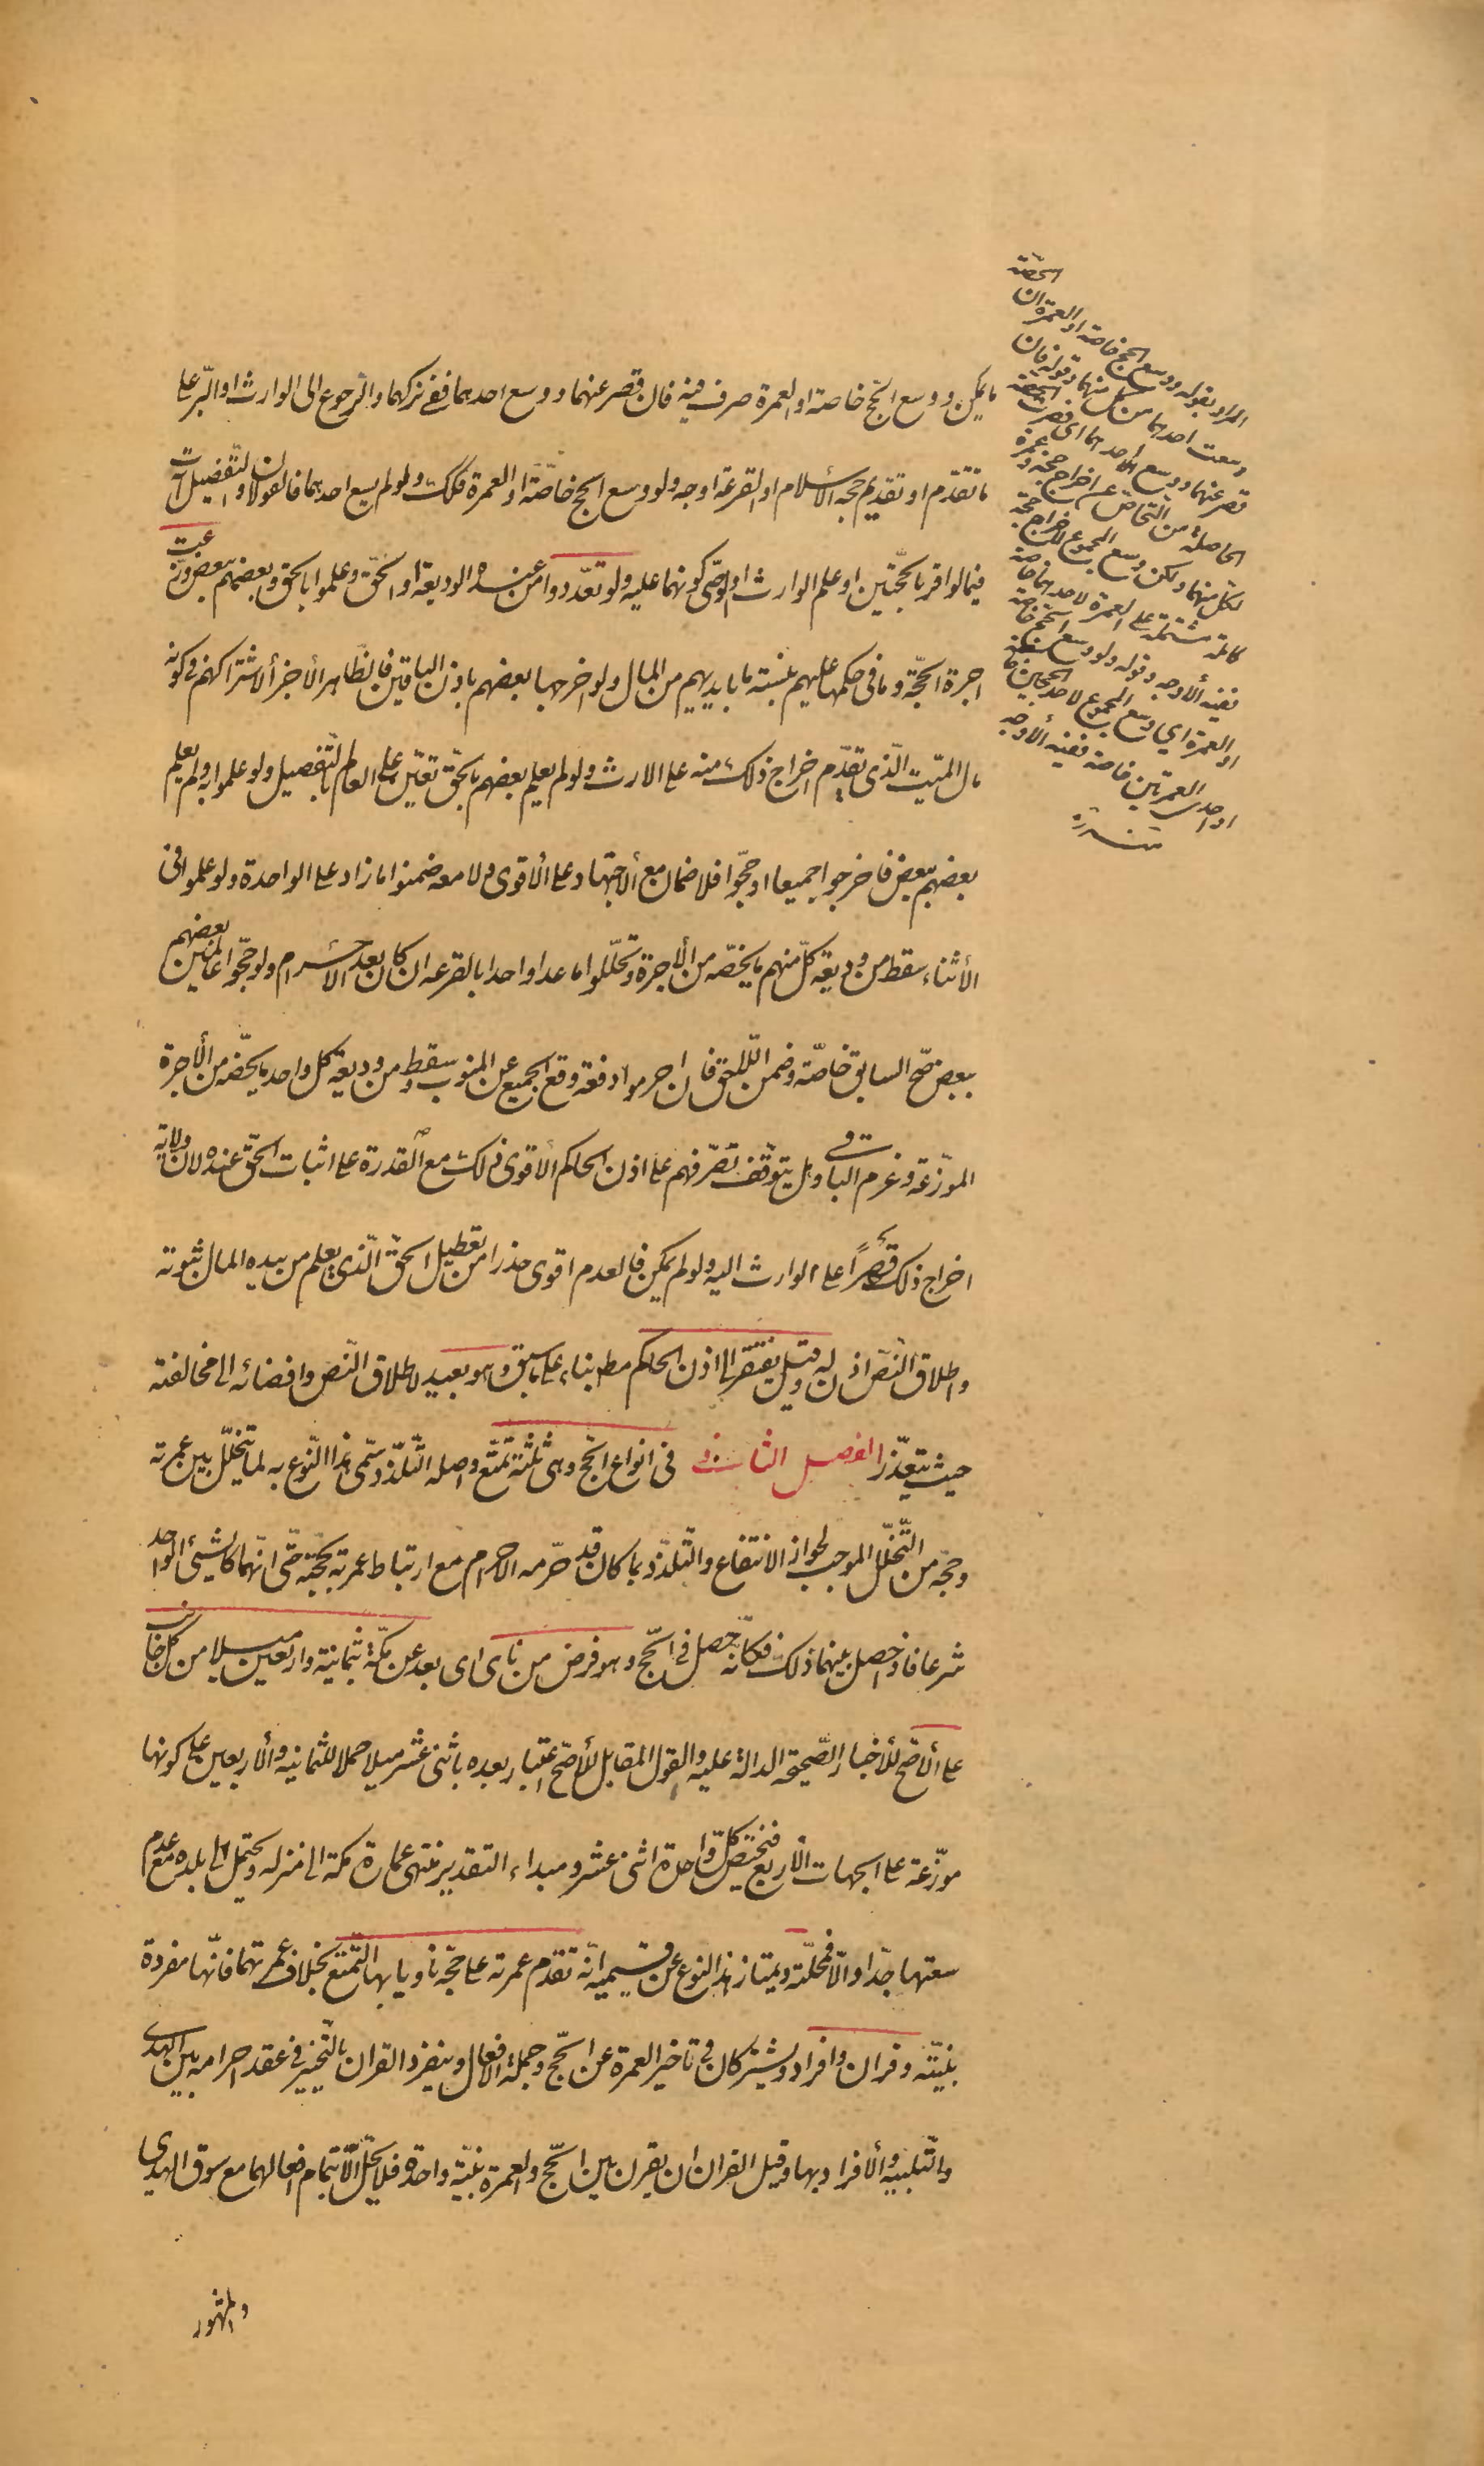 ما يمكن ووسع الحجّ خاصة او العمرة صرف فيه فان قصر عنهما ووسع احدهما ففي تركهما والرجوع الى الوارث او البرّ على
ما تقدم او تقديم حجة الأسلام او القرعة اوجه ولو وسع الحج خاصّة او العمرة فكذلك ولو لم يسع احدهما فالقولان والتّفضيل آت
فيما لو اقر بالحجّتين او علم الوارث او الوصّى كونهما عليه ولو تعدّدوا من عنده الوديعة او الحقّ وعلموا بالحق وبعضهم ببعض وزّعت
اجرة الحجّة وما فى حكمها عليهم بنسبة ما بايديهم من المال ولو اخرجها بعضهم باذن الباقين فالظّاهر الأجزأ لاشتراكهم فى كونه
مال الميّت الّذى تقدّم اخراج ذلك منه على الارث ولو لم يعلم بعضهم بالحقّ تعيّن على العالم بالتّفصيل ولو علموا به ولم يعلم
بعضهم ببعض فاخرجوا جميعا او حجّوا فلا ضمان مع الأجتهاد على الأقوى ولا معه ضمنوا ما زاد على الواحدة ولو علموا فى
الأثناء سقط من وديعة كلّ منهم ما يخصّه من الأجرة وتحلّلوا ما عدا واحدا بالقرعه ان كان بعد الأحرام ولو حجّوا عالمين بعضهم
ببعض صّح السابق خاصّة وضمن اللّاحق فان احرموا دفعة وقع الجميع عن المنوب وسقط من وديعة كل واحد ما يخصّه من الأجرة
الموزّعة وغرم الباقى وهل يتوقّف تصّرفهم على اذن الحاكم الأقوى ذلك مع القدرة على اثبات الحقّ عنده لان ولاية
اخراج ذلك قهرًا على الوارث اليه ولو لم يمكن فالعدم اقوى حذرا من تعطيل الحقّ الّذى يعلم من بيده المال ثبوته
واطلاق النّصّ اذن له وقيل يفتقر الى اذن الحاكم مط بناء على ما سبق وهو بعيد لاطلاق النّص وافضائه الى مخالفته
حيث يتعذّر الفصل الثانى فى انواع الحّج وهى ثلثة تمتّع واصله التّلذّذ وسّمى هذا النّوع به لما يتخلّل بين عمرته
وحجّه من التّحلّل الموجب لجواز الانتفاع والتّلذّذ بما كان قد حرّمه الاحرام مع ارتباط عمرته بحجّه حتّى انّهما كالشيئ الواحد
شرعا فاذا حصل بينهما ذلك فكأنّه حصل فى الحّج وهو فرض من نأى اى بعد عن مكّة بثمانية واربعين ميلا من كلّ جانب
على الأصّح للأخبار الصّحيحة الدالة عليه والقول المقابل للأصّح اعتبار بعده باثنى عشر ميلا حملا للثمانيه والأربعين على كونها
موزّعة على الجهات الأربع فيختصّ كلّ واحدة اثنى عشر ومبداء التقدير منتهى عمارة مكة الى منزله ويحتمل الى بلده مع عدم
سعتها جدّا والّا فمحلّته ويمتاز هذا النوع عن قسيميه انّه تقدم عمرته على حجّه ناويا بها التمتّع بخلاف عمرتهما فانّها مفردة
بنيّته وقران وافراد ويشتركان فى تاخير العمرة عن الحّج وجملة الأفعال وينفرد القران بالتّخيير فى عقد احرامه بين الهدى
والتّلبيه والأفراد بها وقيل القران ان يقرن بين الحّج والعمرة بنيّة واحدة فلا يحلّ الّا بتمام افعالهما مع سوق الهدى
والمشهور
المراد بقوله ووسع الحج خاصة او العمرة ان الحصّة
وسعت احدهما من كل منهما وقوله فان
قصر عنهما ووسع احدهما اى قصرت الحصة
الحاصلة من التحاصّ عن اخراج حجة وعمرة
لكل منهما ولكن وسع المجموع لاخراج حجة
كاملة مشتملة على العمرة لاحدهما خاصة
ففيه الأوجه وقوله ولو وسع الحج خاصة
او العمرة اي وسع المجموع لاحد الحجين خاصة
او احدى العمرتين خاصة ففيه الأوجه